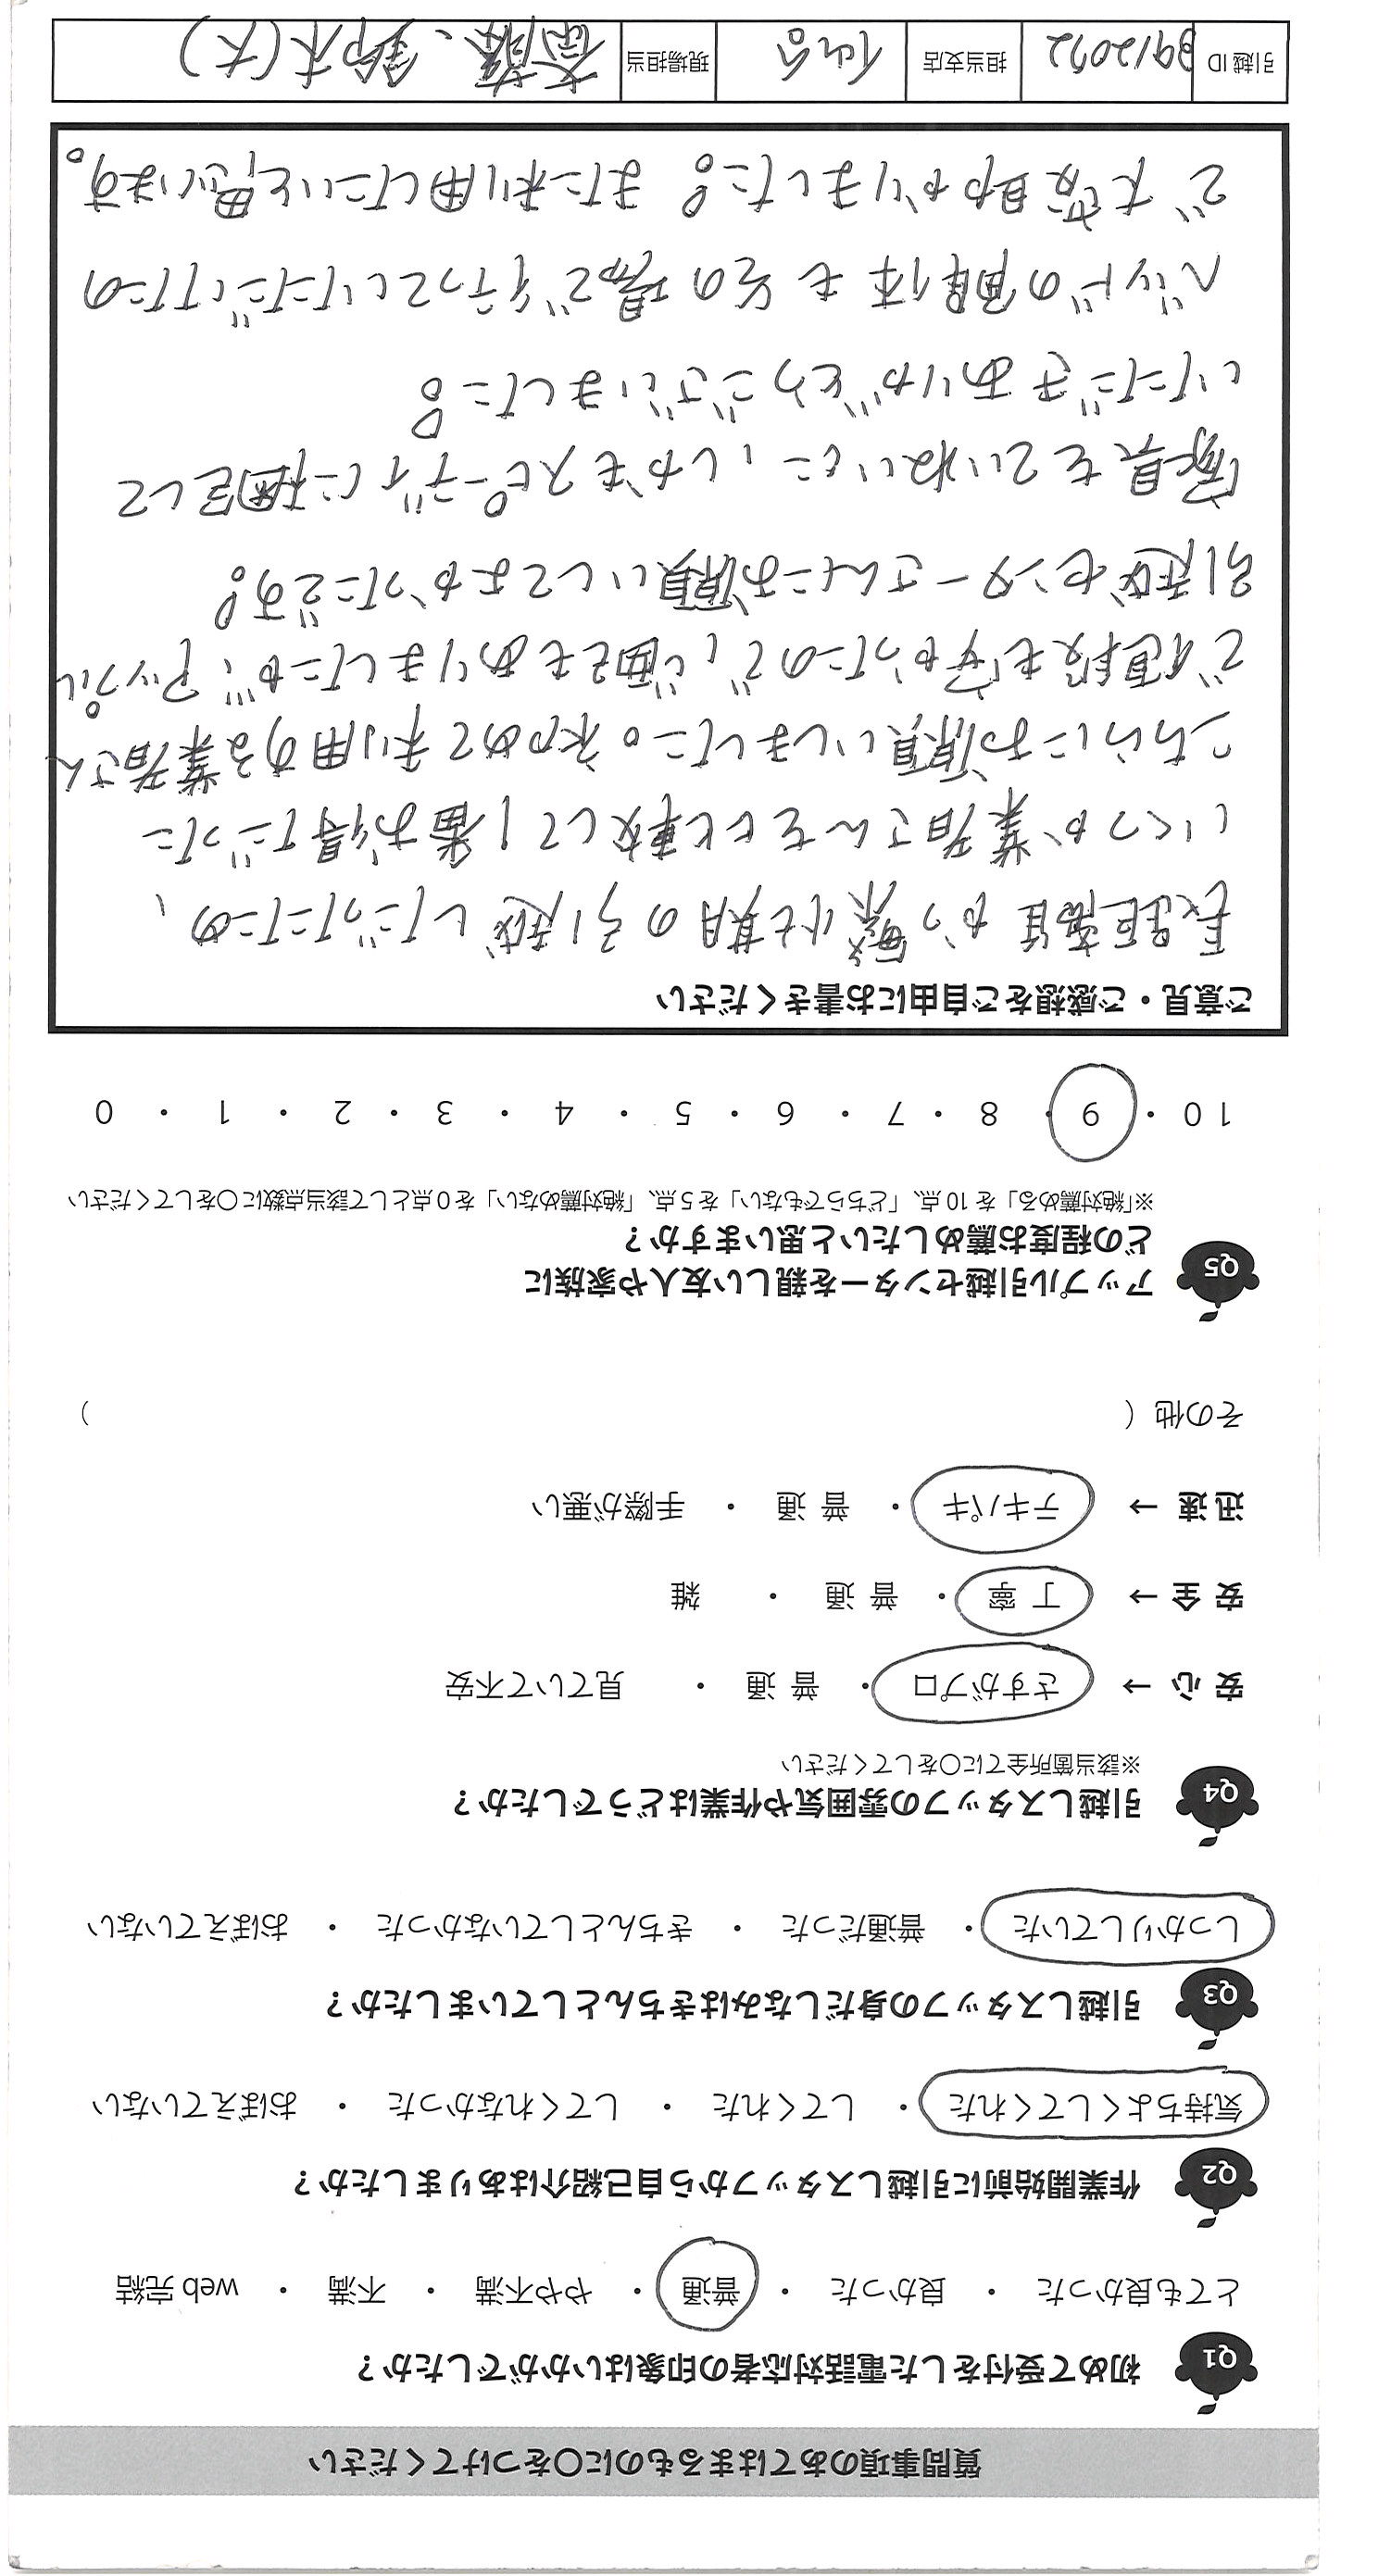 質問事項のあてはまるものに〇をつけてください
Q1 初めて受付をした電話対応者の印象はいかがでしたか？
とても良かった ・ 良かった ・ 普通 ・ やや不満 ・ 不満 ・ web 完結
Q2 作業開始前に引越しスタッフから自己紹介はありましたか？
気持ちよくしてくれた ・ してくれた ・ してくれなかった ・ おぼえていない
Q3 引越しスタッフの身だしなみはきちんとしていましたか？
しっかりしていた ・ 普通だった ・ きちんとしていなかった ・ おぼえていない
Q4 引越しスタッフの雰囲気や作業はどうでしたか？
※該当箇所全てに〇をしてください
安 心 → さすがプロ ・ 普 通 ・ 見ていて不安
安 全 → 丁 寧 ・ 普 通 ・ 雑
迅 速 → テキパキ ・ 普 通 ・ 手際が悪い
その他（ ）
Q5 アップル引越センターを親しい友人や家族に
どの程度お薦めしたいと思いますか？
※「絶対薦める」を 10 点、「どちらでもない」を 5 点、「絶対薦めない」を 0 点として該当点数に〇をしてください
10 ・ 9 ・ 8 ・ 7 ・ 6 ・ 5 ・ 4 ・ 3 ・ 2 ・ 1 ・ 0
ご意見・ご感想をご自由にお書きください
長距離且つ繁忙期の引越しだったため、
いくつか業者さんを比較して1番お得だった
こちらにお願いしました。初めて利用する業者さん
で値段も安かったので、心配もありましたが、アップル
引越センターさんにお願いしてよかったです!
家具をていねいに、しかもスピーディに梱包して
いただきありがとうございました!
ベッドの解体もその場で行っていただいたの
で大変助かりました! また利用したいと思います。
引越 ID 3912092 担当支店 仙台 現場担当 斎藤、鈴木(大)